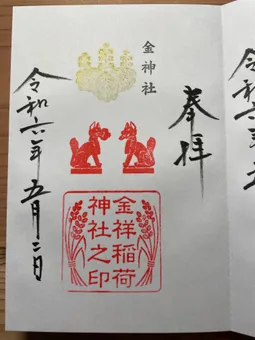 奉拝
金神社
金祥稲荷
神社之印
令和六年 五月二日
令和六年